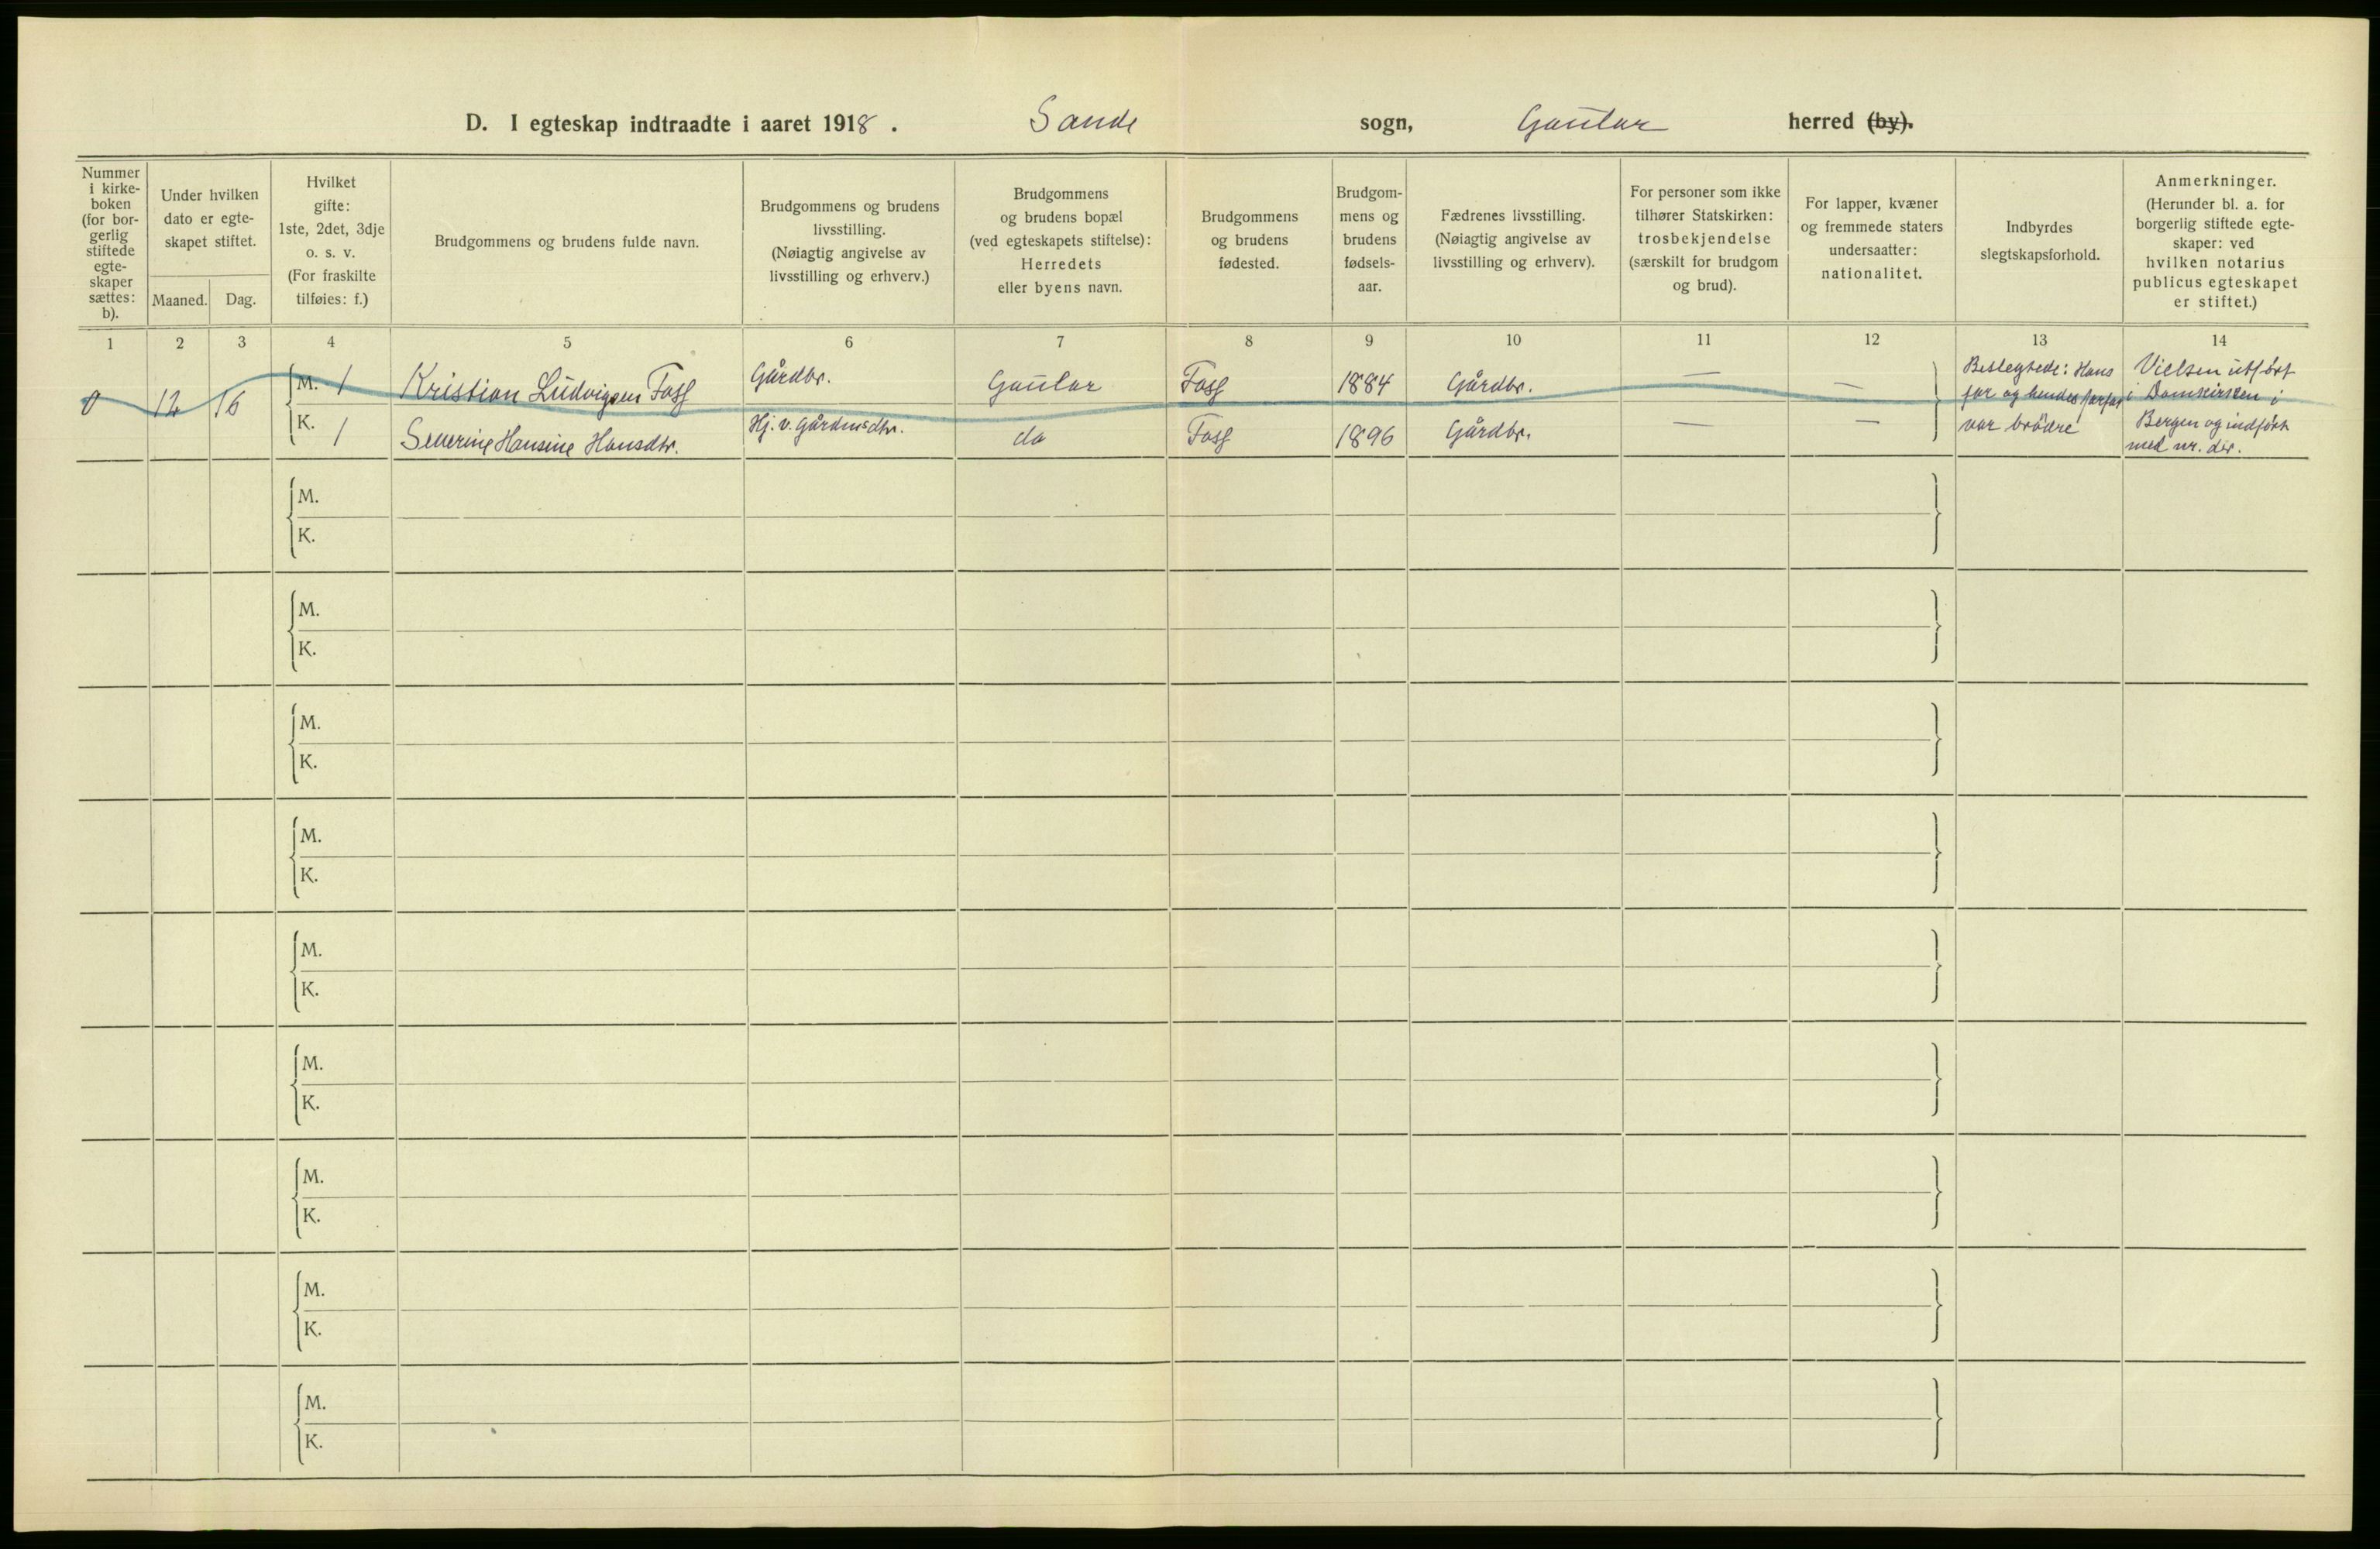 D. I egteskap indtraadte i aaret 1918. Sande sogn, Gaular herred (by).
Nummer i kirke-boken (for bor-gerlig stiftede egte-skaper sættes: b).
Under hvilken dato er egte-skapet stiftet.
Maaned. Dag.
Hvilket gifte: 1ste, 2det, 3dje o. s. v. (For fraskilte tilføies: f.)
Brudgommens og brudens fulde navn.
Brudgommens og brudens livsstilling. (Nøiagtig angivelse av livsstilling og erhverv.)
Brudgommens og brudens bopæl (ved egteskapets stiftelse): Herredets eller byens navn.
Brudgommens og brudens fødested.
Brudgom-mens og brudens fødsels-aar.
Fædrenes livsstilling. (Nøiagtig angivelse av livsstilling og erhverv).
For personer som ikke tilhører Statskirken: trosbekjendelse (særskilt for brudgom og brud).
For lapper, kvæner og fremmede staters undersaatter: nationalitet.
Indbyrdes slegtskapsforhold.
Anmerkninger. (Herunder bl. a. for borgerlig stiftede egte-skaper: ved hvilken notarius publicus egteskapet er stiftet.)
1 2 3 4 5 6 7 8 9 10 11 12 13 14
0 12 16 M. 1 Kristian Ludvigsen Foss Gårdbr. Gaular Foss 1884 Gårdbr. — —
K. 1 Severine Hansine Hansdtr. Hj. v. Gårdmsdtr. do Foss 1896 Gårdbr. — —
Beslegtede: Hans
far og hendes farfar
var brødre
Vielsen utført
i Domkirken i
Bergen og indført
med nr. der.
M.
K.
M.
K.
M.
K.
M.
K.
M.
K.
M.
K.
M.
K.
M.
K.
M.
K.